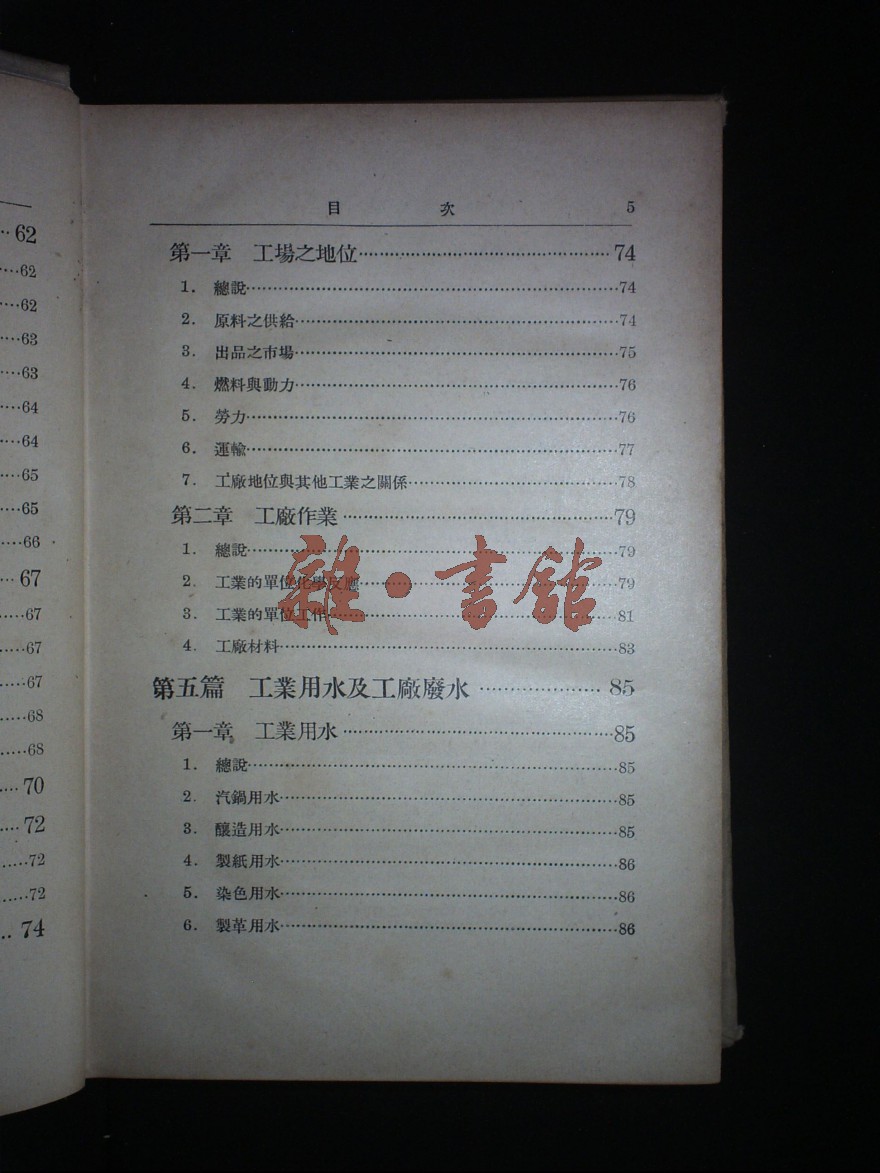 ··62
····62
····62
····63
····63
····64
····64
····65
····65
····66
···67
····67
····67
····67
·····68
·····68
····70
····72
·····72
·····72
·· 74
目 次 5
第一章 工場之地位··············································74
1. 總說····································································74
2. 原料之供給····························································74
3. 出品之市場····························································75
4. 燃料與動力····························································76
5. 勞力····································································76
6. 運輸····································································77
7. 工廠地位與其他工業之關係···········································78
第二章 工廠作業··················································79
1. 總說····································································79
2. 工業的單位化學反應··················································79
3. 工業的單位工作·······················································81
4. 工廠材料·······························································83
第五篇 工業用水及工廠廢水····················85
第一章 工業用水··················································85
1. 總說····································································85
2. 汽鍋用水·······························································85
3. 釀造用水·······························································85
4. 製紙用水·······························································86
5. 染色用水·······························································86
6. 製革用水·······························································86
雜·書館